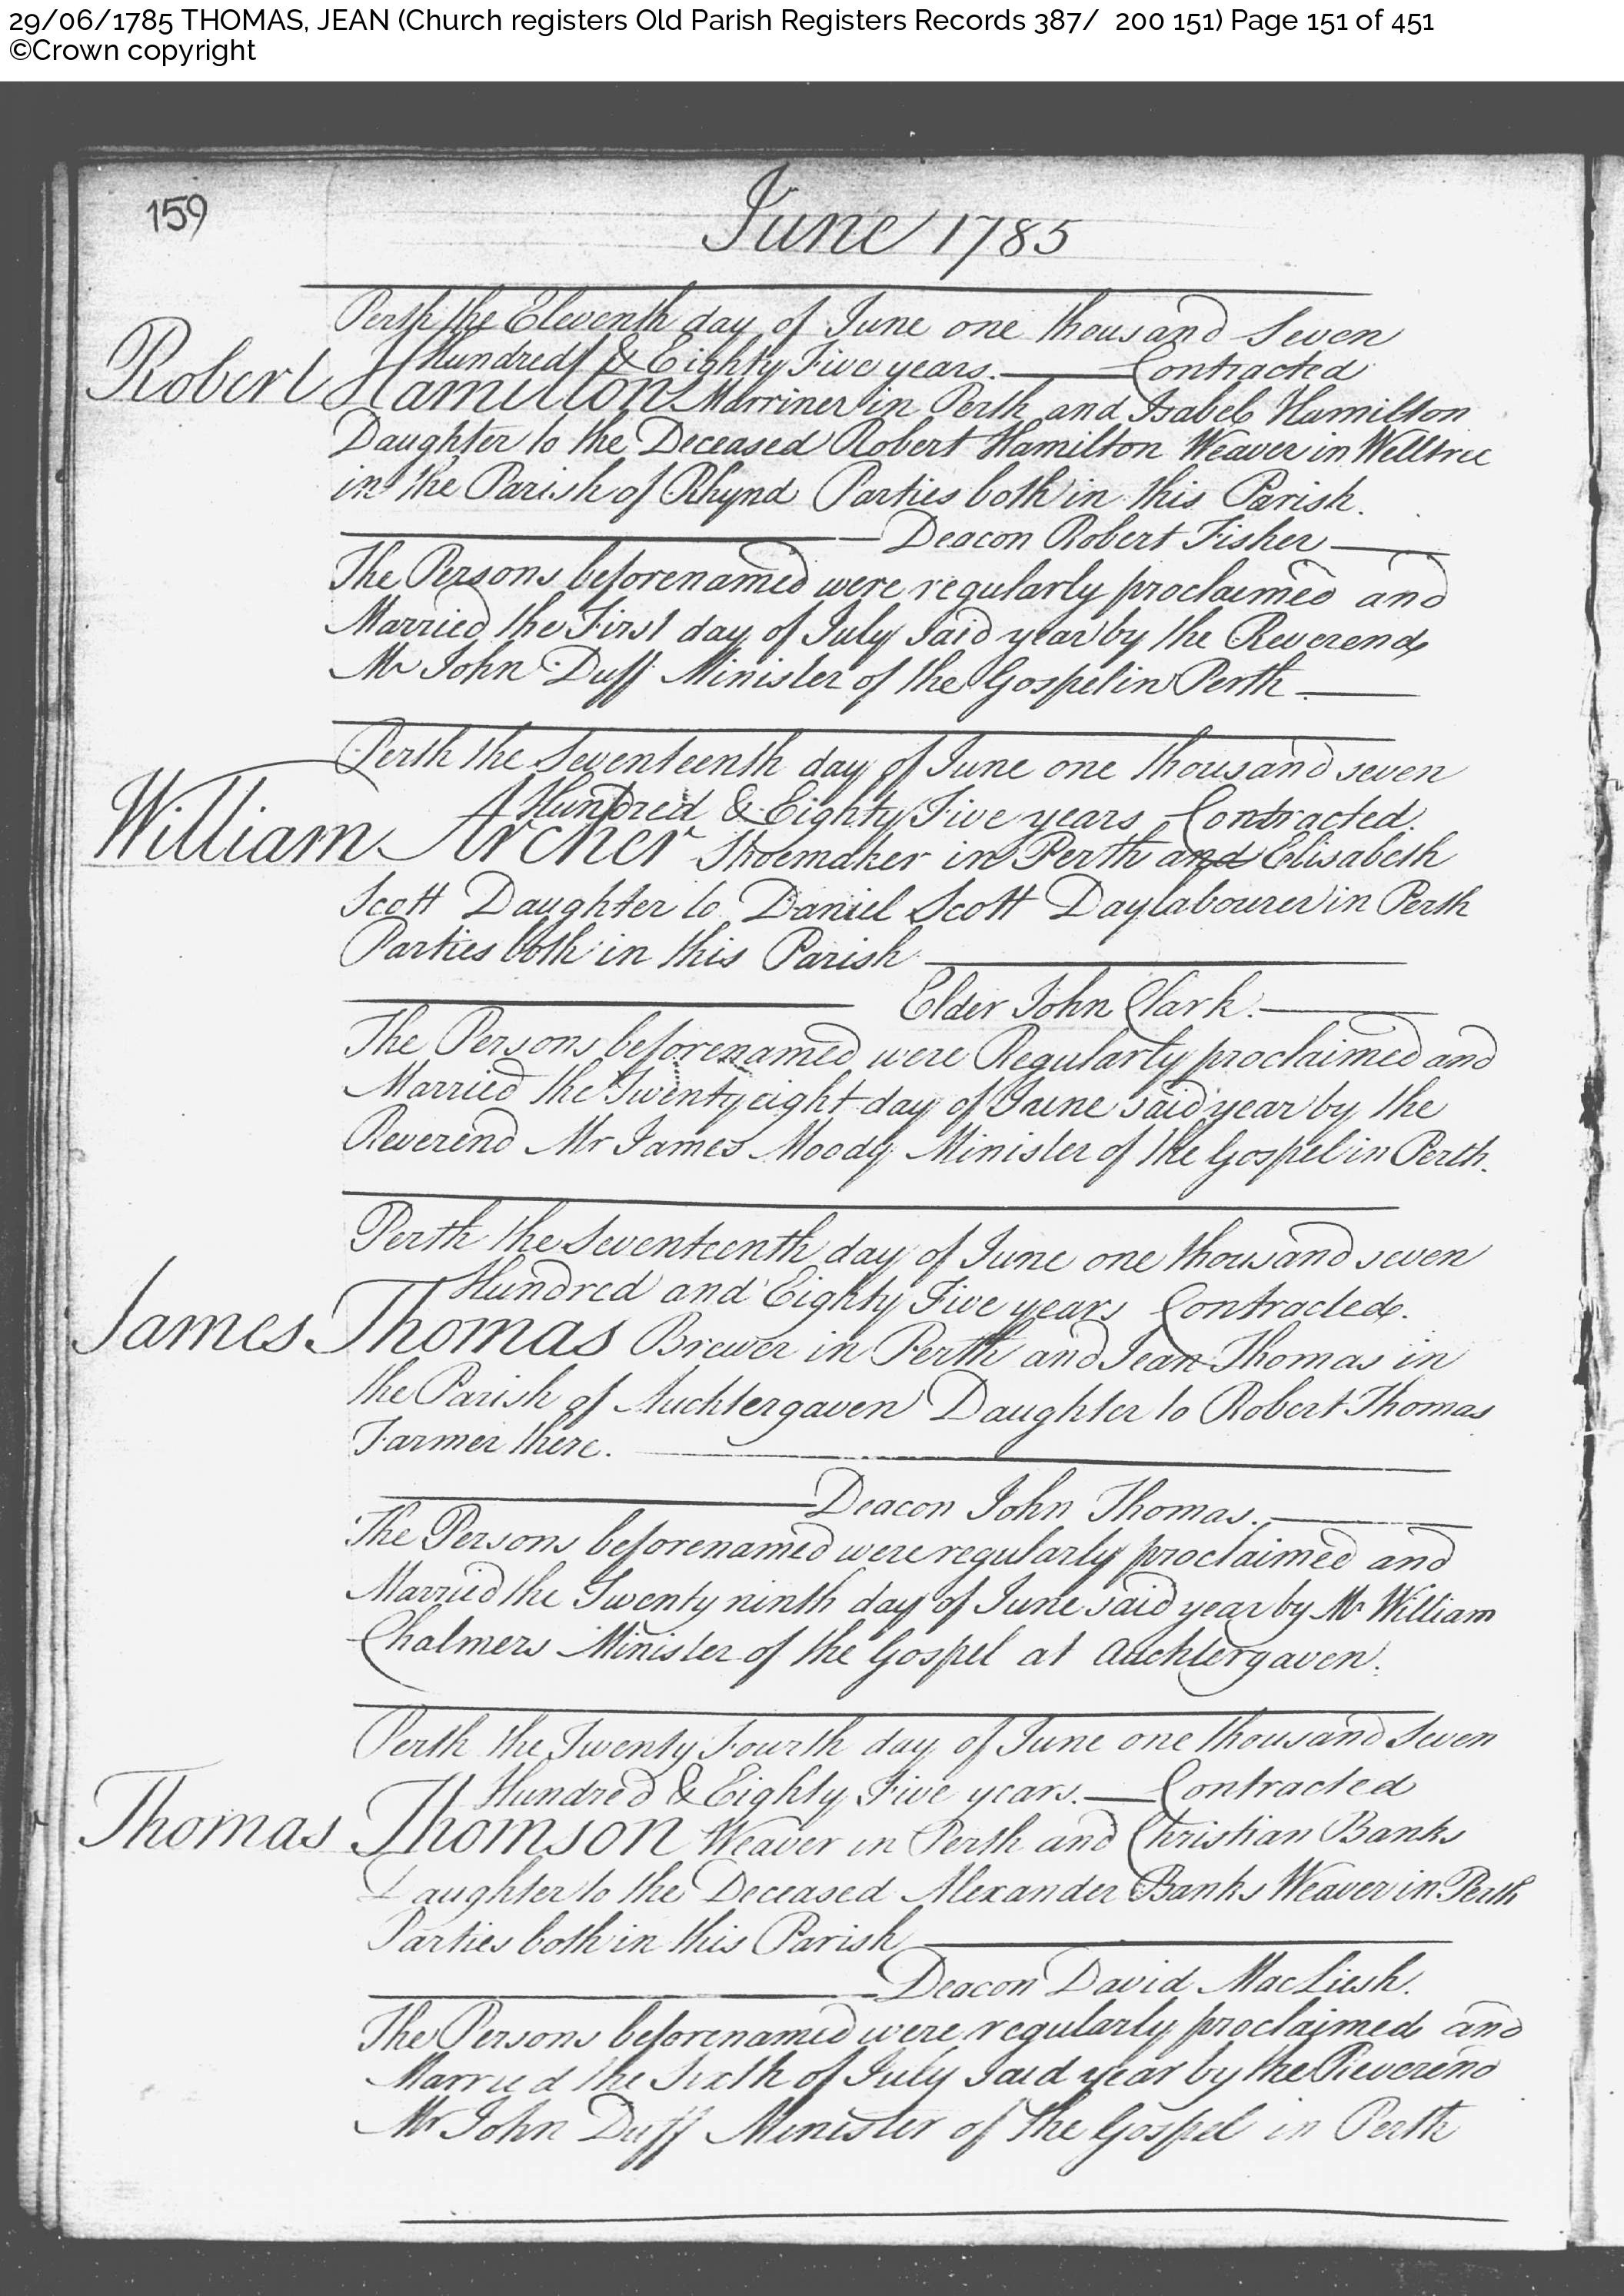 29/06/1785 THOMAS, JEAN (Church registers Old Parish Registers Records 387/ 200 151) Page 151 of 451
©Crown copyright
159
June 1785
Perth the Eleventh day of June one thousand Seven
Hundred & Eighty Five years. Contracted
Robert Hamilton Marriner in Perth and Isabel Hamilton
Daughter to the Deceased Robert Hamilton Weaver in Welltree
in the Parish of Rhynd Parties both in this Parish.
Deacon Robert Fisher
The Persons beforenamed were regularly proclaimed and
Married the First day of July Said year by the Reverend
Mr John Duff Minister of the Gospel in Perth
Perth the Seventeenth day of June one thousand seven
Hundred & Eighty Five years Contracted.
William Archer Shoemaker in Perth and Elisabeth
Scott Daughter to Daniel Scott Daylabourer in Perth
Parties both in this Parish
Elder John Clark.
The Persons beforenamed were Regularly proclaimed and
Married the Twenty eight day of June said year by the
Reverend Mr James Moody Minister of the Gospel in Perth.
Perth the Seventeenth day of June one thousand seven
Hundred and Eighty Five years Contracted.
James Thomas Brewer in Perth and Jean Thomas in
the Parish of Auchtergaven Daughter to Robert Thomas
Farmer there.
Deacon John Thomas.
The Persons beforenamed were regularly proclaimed and
Married the Twenty ninth day of June said year by Mr William
Chalmers Minister of the Gospel at Auchtergaven.
Perth the Twenty Fourth day of June one thousand Seven
Hundred & Eighty Five years. Contracted
Thomas Thomson Weaver in Perth and Christian Banks
Daughter to the Deceased Alexander Banks Weaver in Perth
Parties both in this Parish
Deacon David MacLiesh.
The Persons beforenamed were regularly proclaimed and
Married the Sixth of July Said year by the Reverend
Mr John Duff Minister of the Gospel in Perth